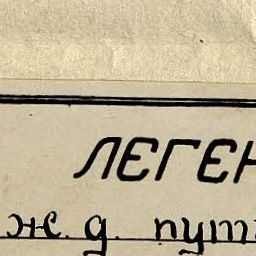 ЛЕГЕН
ж. д. пути